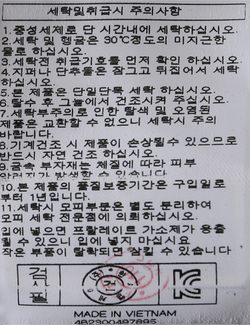 세탁및취급시 주의사항
1.중성세제로 단 시간내에 세탁하십시오.
2.세탁 및 헹굼은 30℃정도의 미지근한
물로 하십시오.
3.세탁전 취급기호를 먼저 확인 하십시오.
4.지퍼나 단추등은 잠그고 뒤집어서 세탁
하십시오.
5.본 제품은 단일단독 세탁 하십시오.
6.탈수 후 그늘에서 건조시켜 주십시오.
7.세탁부주의로 인한 탈색 및 오염된
제품은 교환할 수 없으니 세탁시 주의
바랍니다.
8.기계건조 시 제품이 손상될수 있으므로
반드시 자연 건조 하십시오.
9.금속 부자재는 체질에 따라 피부
알러지가 발생할 수 있습니다.
10.본 제품의 품질보증기간은 구입일로
부터 1년입니다.
11.세탁시 모피부분은 별도 분리하여
모피 세탁 전문점에 의뢰하십시오.
입에 넣으면 프탈레이트 가소제가 용출
될수 있으니 입에 넣지 마십시요
작은 부품이 탈락되면 삼킬 수 있습니다
검사필
KC
MADE IN VIETNAM
4B2300497895